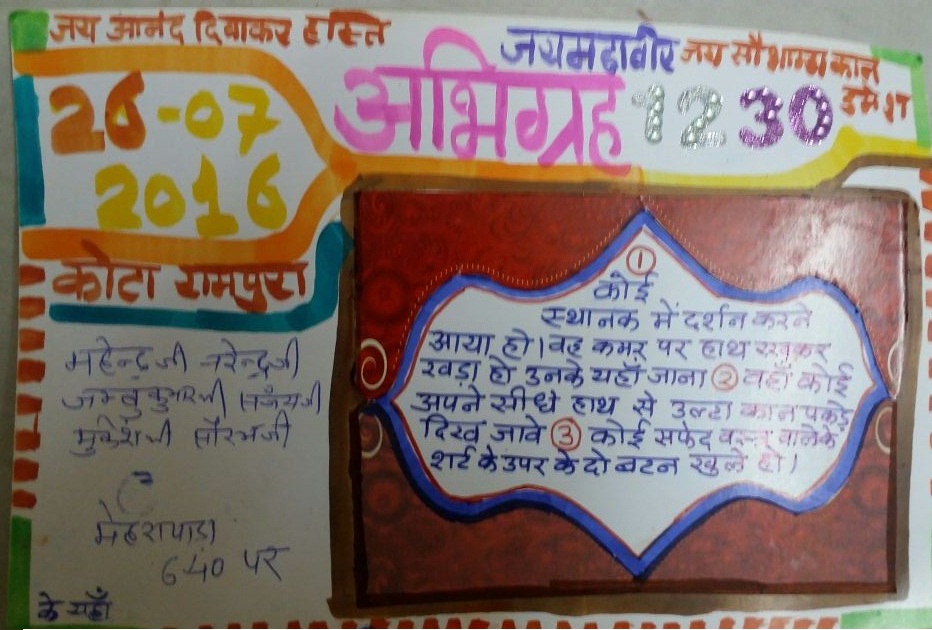 जय आनंद दिवाकर हस्ति
जयमहावीर जय सौभाग्य कान
उमेश
अभिग्रह 1230
26-07
2016
कोटा रामपुरा
महेन्द्रजी नरेन्द्रजी
जम्बुकुमारजी संजयजी
मुकेशजी सौरभजी
मेहरापाड़ा
640 पर
के यहाँ
①
कोई
स्थानक में दर्शन करने
आया हो। वह कमर पर हाथ रखकर
खड़ा हो उनके यहाँ जाना ② वहाँ कोई
अपने सीधे हाथ से उल्टा कान पकड़े
दिख जावे ③ कोई सफेद वस्त्र वालेके
शर्ट के उपर के दो बटन खुले हो।